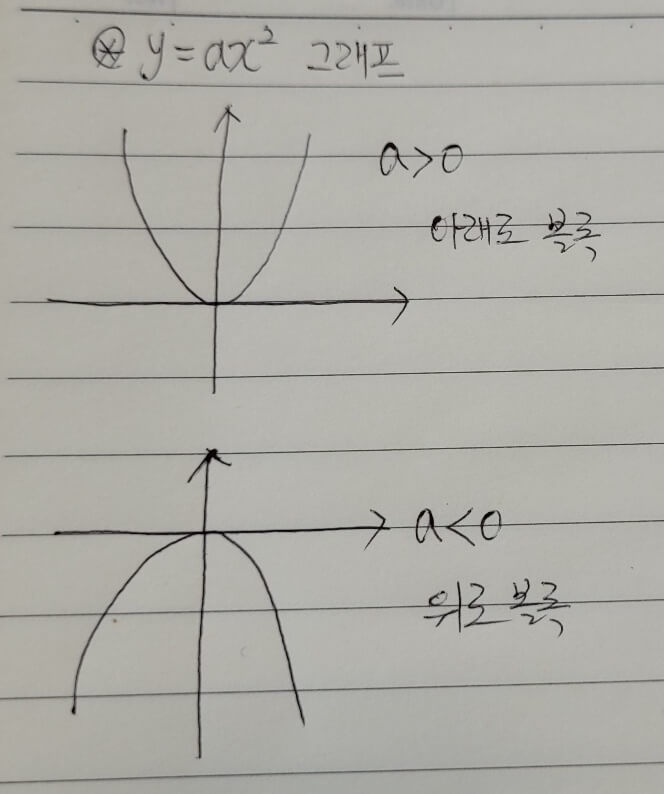 ⊛ y=ax² 그래프
a>0
아래로 볼록
a<0
위로 볼록